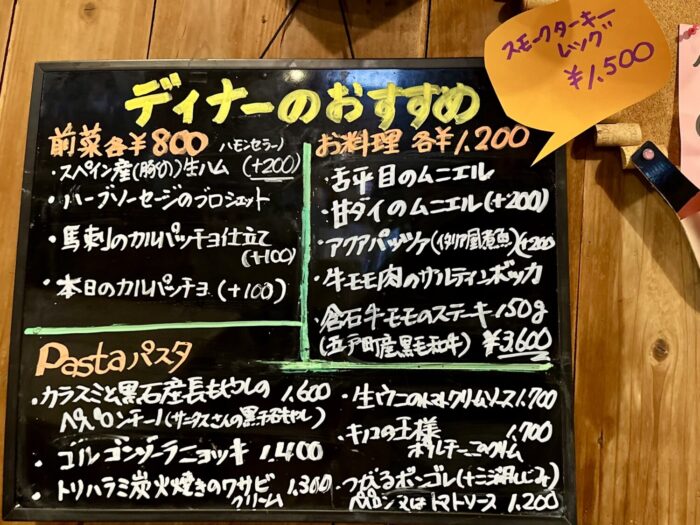 スモークターキー
レッグ
¥1,500
ディナーのおすすめ
前菜各¥800
ハモンセラーノ
・スペイン産(豚の)生ハム (+200)
・ハーブソーセージのブロシェット
・馬刺のカルパッチョ仕立て
(+100)
・本日のカルパッチョ (+100)
お料理 各¥1,200
・舌平目のムニエル
・甘ダイのムニエル(+200)
・アクアパッツァ(イタリア風煮魚)(+200
・牛モモ肉のサルティンボッカ
・倉石牛モモのステーキ150g
(五戸町産黒毛和牛) ¥3,600
Pastaパスタ
・カラスミと黒石産長もやしの 1,600
ペペロンチーノ(サニタスさんの黒千石もやし)
・ゴルゴンゾーラニョッキ 1,400
・トリハラミ炭火焼きのワサビ 1,300
クリーム
・生ウニのトマトクリームソース1,700
・キノコの王様 1,700
ポルチーニクリーム
・つぶがいボンゴレ(十三湖しじみ)
ペペロン又はトマトソース 1,200